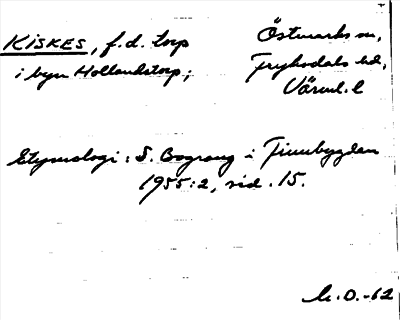 KISKES, f.d. torp
i byn Hollandstorp;
Östmarks sn,
Fryksdals hd,
Värml. l
Etymologi: S. Bograng i Finnbygden
1955:2, sid. 15.
O.-62